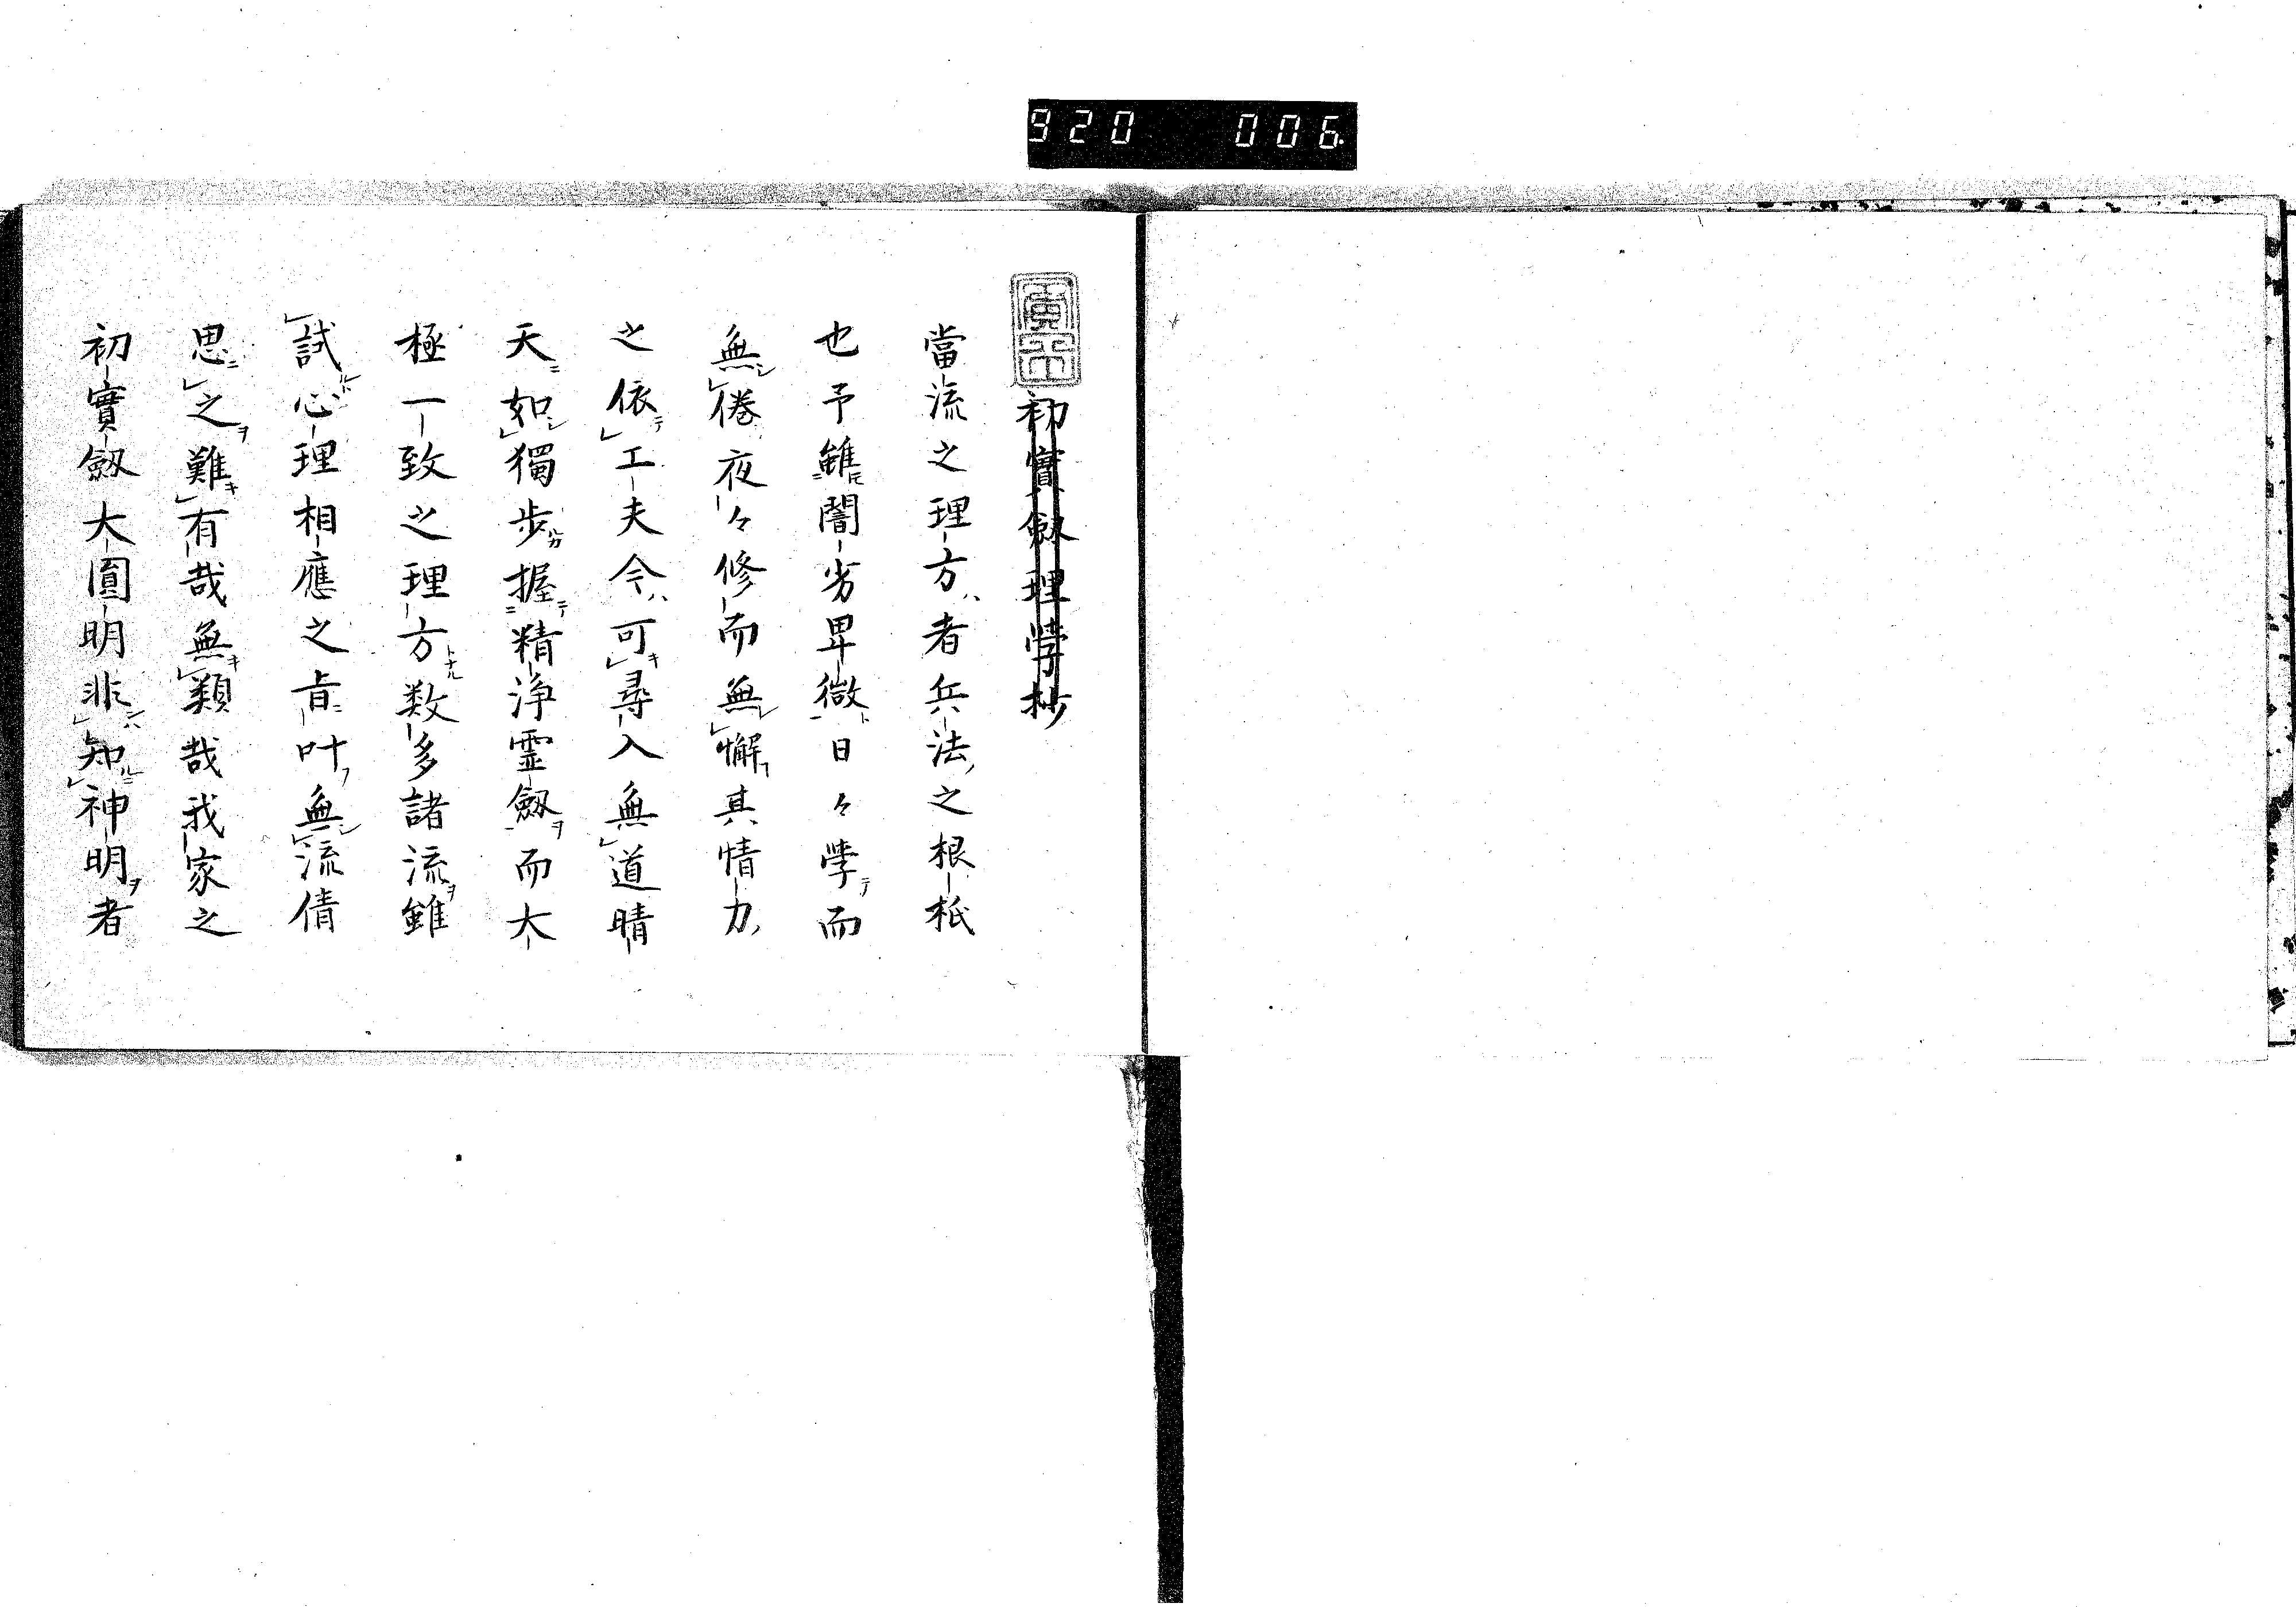 920 006
初實劔理學抄
當流之理方ハ者兵法之根柢
也予雖闇劣卑微日々學テ而
無倦夜々修而無懈其情力
之依テ工夫今ハ可キ尋入無道晴
天ニ如シ獨步握テ精浄霊劔ヲ而大
極一致之理方トナル数多諸流ヲ雖
試心理相應之㫖ニ叶フ無シ流倩
思ニ之ヲ難キ有哉無キ類哉我家之
初實劔大圓明非知神明ヲ者